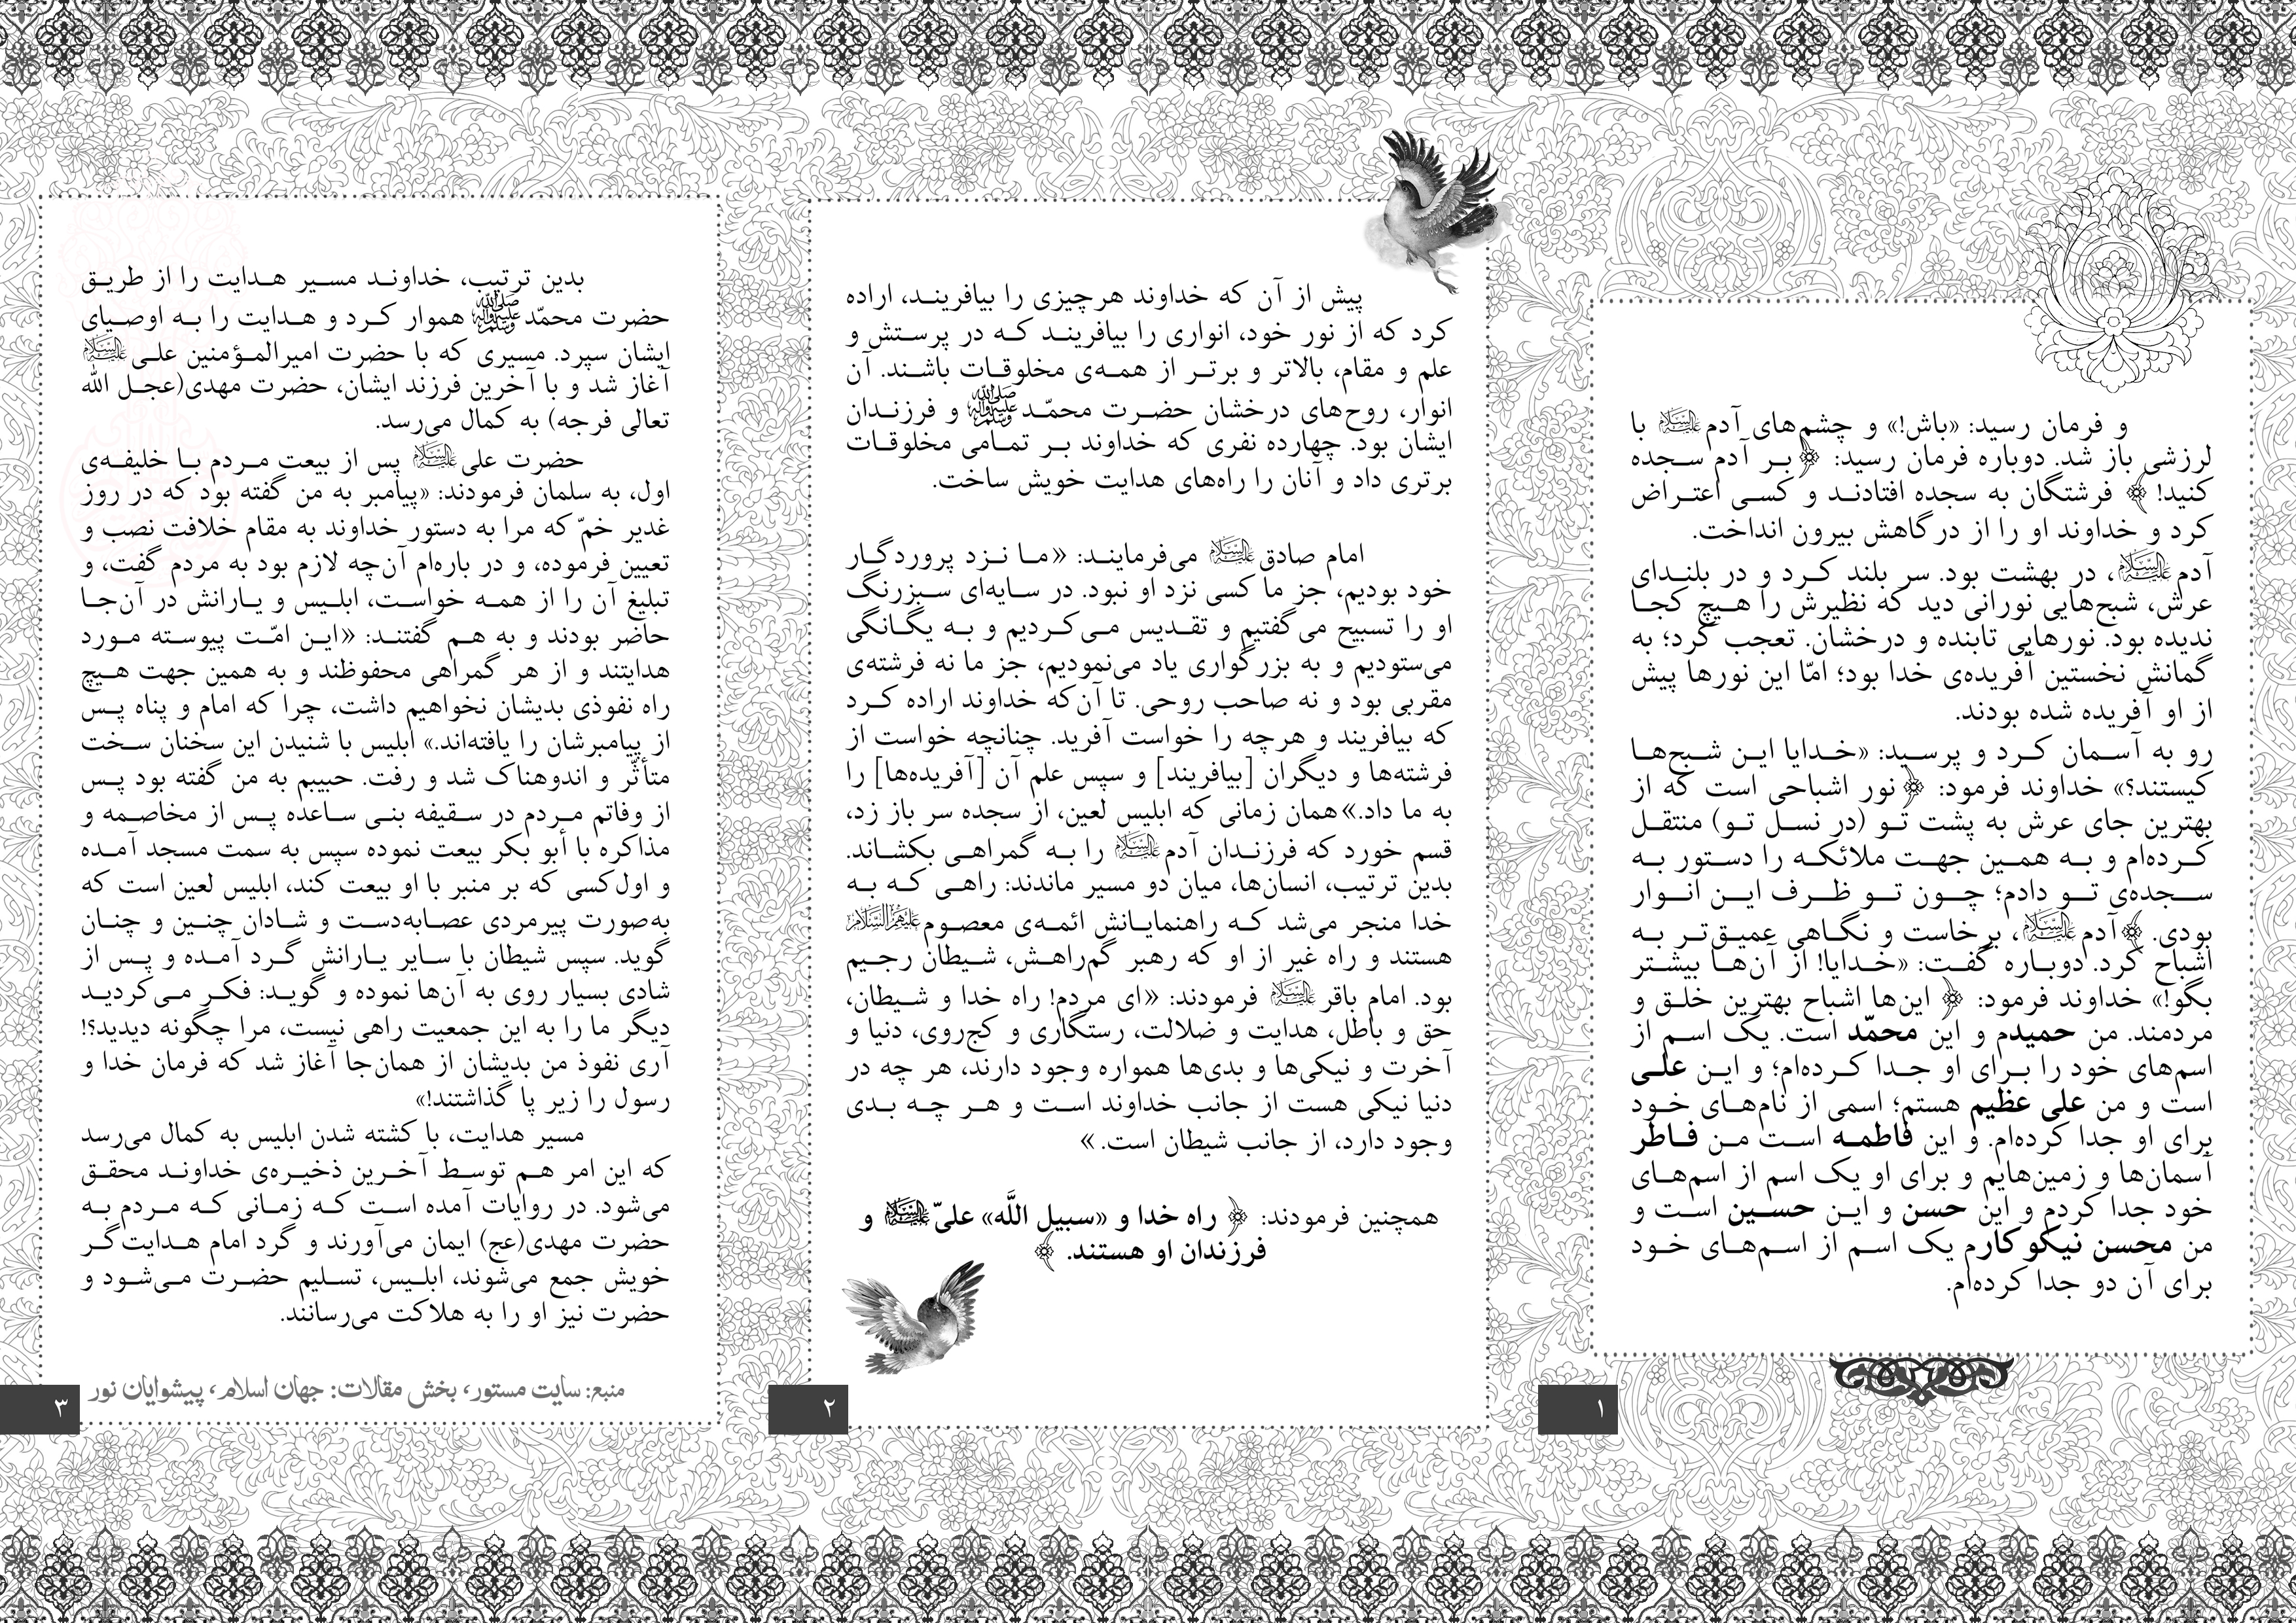 و فرمان رسید: «باش!» و چشم‌های آدم علیه‌السلام با
لرزشی باز شد. دوباره فرمان رسید: ﴿بر آدم سجده
کنید! ﴾ فرشتگان به سجده افتادند و کسی اعتراض
کرد و خداوند او را از درگاهش بیرون انداخت.
آدم علیه‌السلام، در بهشت بود. سر بلند کرد و در بلندای
عرش، شبح‌هایی نورانی دید که نظیرش را هیچ کجا
ندیده بود. نورهایی تابنده و درخشان. تعجب کرد؛ به
گمانش نخستین آفریده‌ی خدا بود؛ امّا این نورها پیش
از او آفریده شده بودند.
رو به آسمان کرد و پرسید: «خدایا این شبح‌ها
کیستند؟» خداوند فرمود: ﴿نور اشباحی است که از
بهترین جای عرش به پشت تو (در نسل تو) منتقل
کرده‌ام و به همین جهت ملائکه را دستور به
سجده‌ی تو دادم؛ چون تو ظرف این انوار
بودی. ﴾آدم علیه‌السلام، برخاست و نگاهی عمیق‌تر به
اشباح کرد. دوباره گفت: «خدایا! از آن‌ها بیشتر
بگو!» خداوند فرمود: ﴿ این‌ها اشباح بهترین خلق و
مردمند. من حمیدم و این محمّد است. یک اسم از
اسم‌های خود را برای او جدا کرده‌ام؛ و این علی
است و من علی عظیم هستم؛ اسمی از نام‌های خود
برای او جدا کرده‌ام. و این فاطمه است من فاطر
آسمان‌ها و زمین‌هایم و برای او یک اسم از اسم‌های
خود جدا کردم و این حسن و این حسین است و
من محسن نیکوکارم یک اسم از اسم‌های خود
برای آن دو جدا کرده‌ام.
۱
پیش از آن که خداوند هرچیزی را بیافریند، اراده
کرد که از نور خود، انواری را بیافریند که در پرستش و
علم و مقام، بالاتر و برتر از همه‌ی مخلوقات باشند. آن
انوار، روح‌های درخشان حضرت محمّد صلی الله علیه وآله وسلم و فرزندان
ایشان بود. چهارده نفری که خداوند بر تمامی مخلوقات
برتری داد و آنان را راه‌های هدایت خویش ساخت.
امام صادق علیه‌السلام می‌فرمایند: «ما نزد پروردگار
خود بودیم، جز ما کسی نزد او نبود. در سایه‌ای سبزرنگ
او را تسبیح می‌گفتیم و تقدیس می‌کردیم و به یگانگی
می‌ستودیم و به بزرگواری یاد می‌نمودیم، جز ما نه فرشته‌ی
مقربی بود و نه صاحب روحی. تا آن‌که خداوند اراده کرد
که بیافریند و هرچه را خواست آفرید. چنانچه خواست از
فرشته‌ها و دیگران [بیافریند] و سپس علم آن [آفریده‌ها] را
به ما داد.»همان زمانی که ابلیس لعین، از سجده سر باز زد،
قسم خورد که فرزندان آدم علیه‌السلام را به گمراهی بکشاند.
بدین ترتیب، انسان‌ها، میان دو مسیر ماندند: راهی که به
خدا منجر می‌شد که راهنمایانش ائمه‌ی معصوم علیهم‌السلام
هستند و راه غیر از او که رهبر گم‌راهش، شیطان رجیم
بود. امام باقر علیه‌السلام فرمودند: «ای مردم! راه خدا و شیطان،
حق و باطل، هدایت و ضلالت، رستگاری و کج‌روی، دنیا و
آخرت و نیکی‌ها و بدی‌ها همواره وجود دارند، هر چه در
دنیا نیکی هست از جانب خداوند است و هر چه بدی
وجود دارد، از جانب شیطان است. »
همچنین فرمودند: ﴿ راه خدا و «سبیل اللَّه» علیّ علیه‌السلام و
فرزندان او هستند. ﴾
۲
بدین ترتیب، خداوند مسیر هدایت را از طریق
حضرت محمّد صلی الله علیه وآله وسلم هموار کرد و هدایت را به اوصیای
ایشان سپرد. مسیری که با حضرت امیرالمؤمنین علی علیه‌السلام
آغاز شد و با آخرین فرزند ایشان، حضرت مهدی(عجل الله
تعالی فرجه) به کمال می‌رسد.
حضرت علی علیه‌السلام پس از بیعت مردم با خلیفه‌ی
اول، به سلمان فرمودند: «پیامبر به من گفته بود که در روز
غدیر خمّ که مرا به دستور خداوند به مقام خلافت نصب و
تعیین فرموده، و در باره‌ام آن‌چه لازم بود به مردم گفت، و
تبلیغ آن را از همه خواست، ابلیس و یارانش در آن‌جا
حاضر بودند و به هم گفتند: «این امّت پیوسته مورد
هدایتند و از هر گمراهی محفوظند و به همین جهت هیچ
راه نفوذی بدیشان نخواهیم داشت، چرا که امام و پناه پس
از پیامبرشان را یافته‌اند.» ابلیس با شنیدن این سخنان سخت
متأثّر و اندوهناک شد و رفت. حبیبم به من گفته بود پس
از وفاتم مردم در سقیفه بنی ساعده پس از مخاصمه و
مذاکره با أبو بکر بیعت نموده سپس به سمت مسجد آمده
و اول‌کسی که بر منبر با او بیعت کند، ابلیس لعین است که
به‌صورت پیرمردی عصابه‌دست و شادان چنین و چنان
گوید. سپس شیطان با سایر یارانش گرد آمده و پس از
شادی بسیار روی به آن‌ها نموده و گوید: فکر می‌کردید
دیگر ما را به این جمعیت راهی نیست، مرا چگونه دیدید؟!
آری نفوذ من بدیشان از همان‌جا آغاز شد که فرمان خدا و
رسول را زیر پا گذاشتند!»
مسیر هدایت، با کشته شدن ابلیس به کمال می‌رسد
که این امر هم توسط آخرین ذخیره‌ی خداوند محقق
می‌شود. در روایات آمده است که زمانی که مردم به
حضرت مهدی(عج) ایمان می‌آورند و گرد امام هدایت‌گر
خویش جمع می‌شوند، ابلیس، تسلیم حضرت می‌شود و
حضرت نیز او را به هلاکت می‌رسانند.
منبع: سایت مستور، بخش مقالات: جهان اسلام، پیشوایان نور
۳